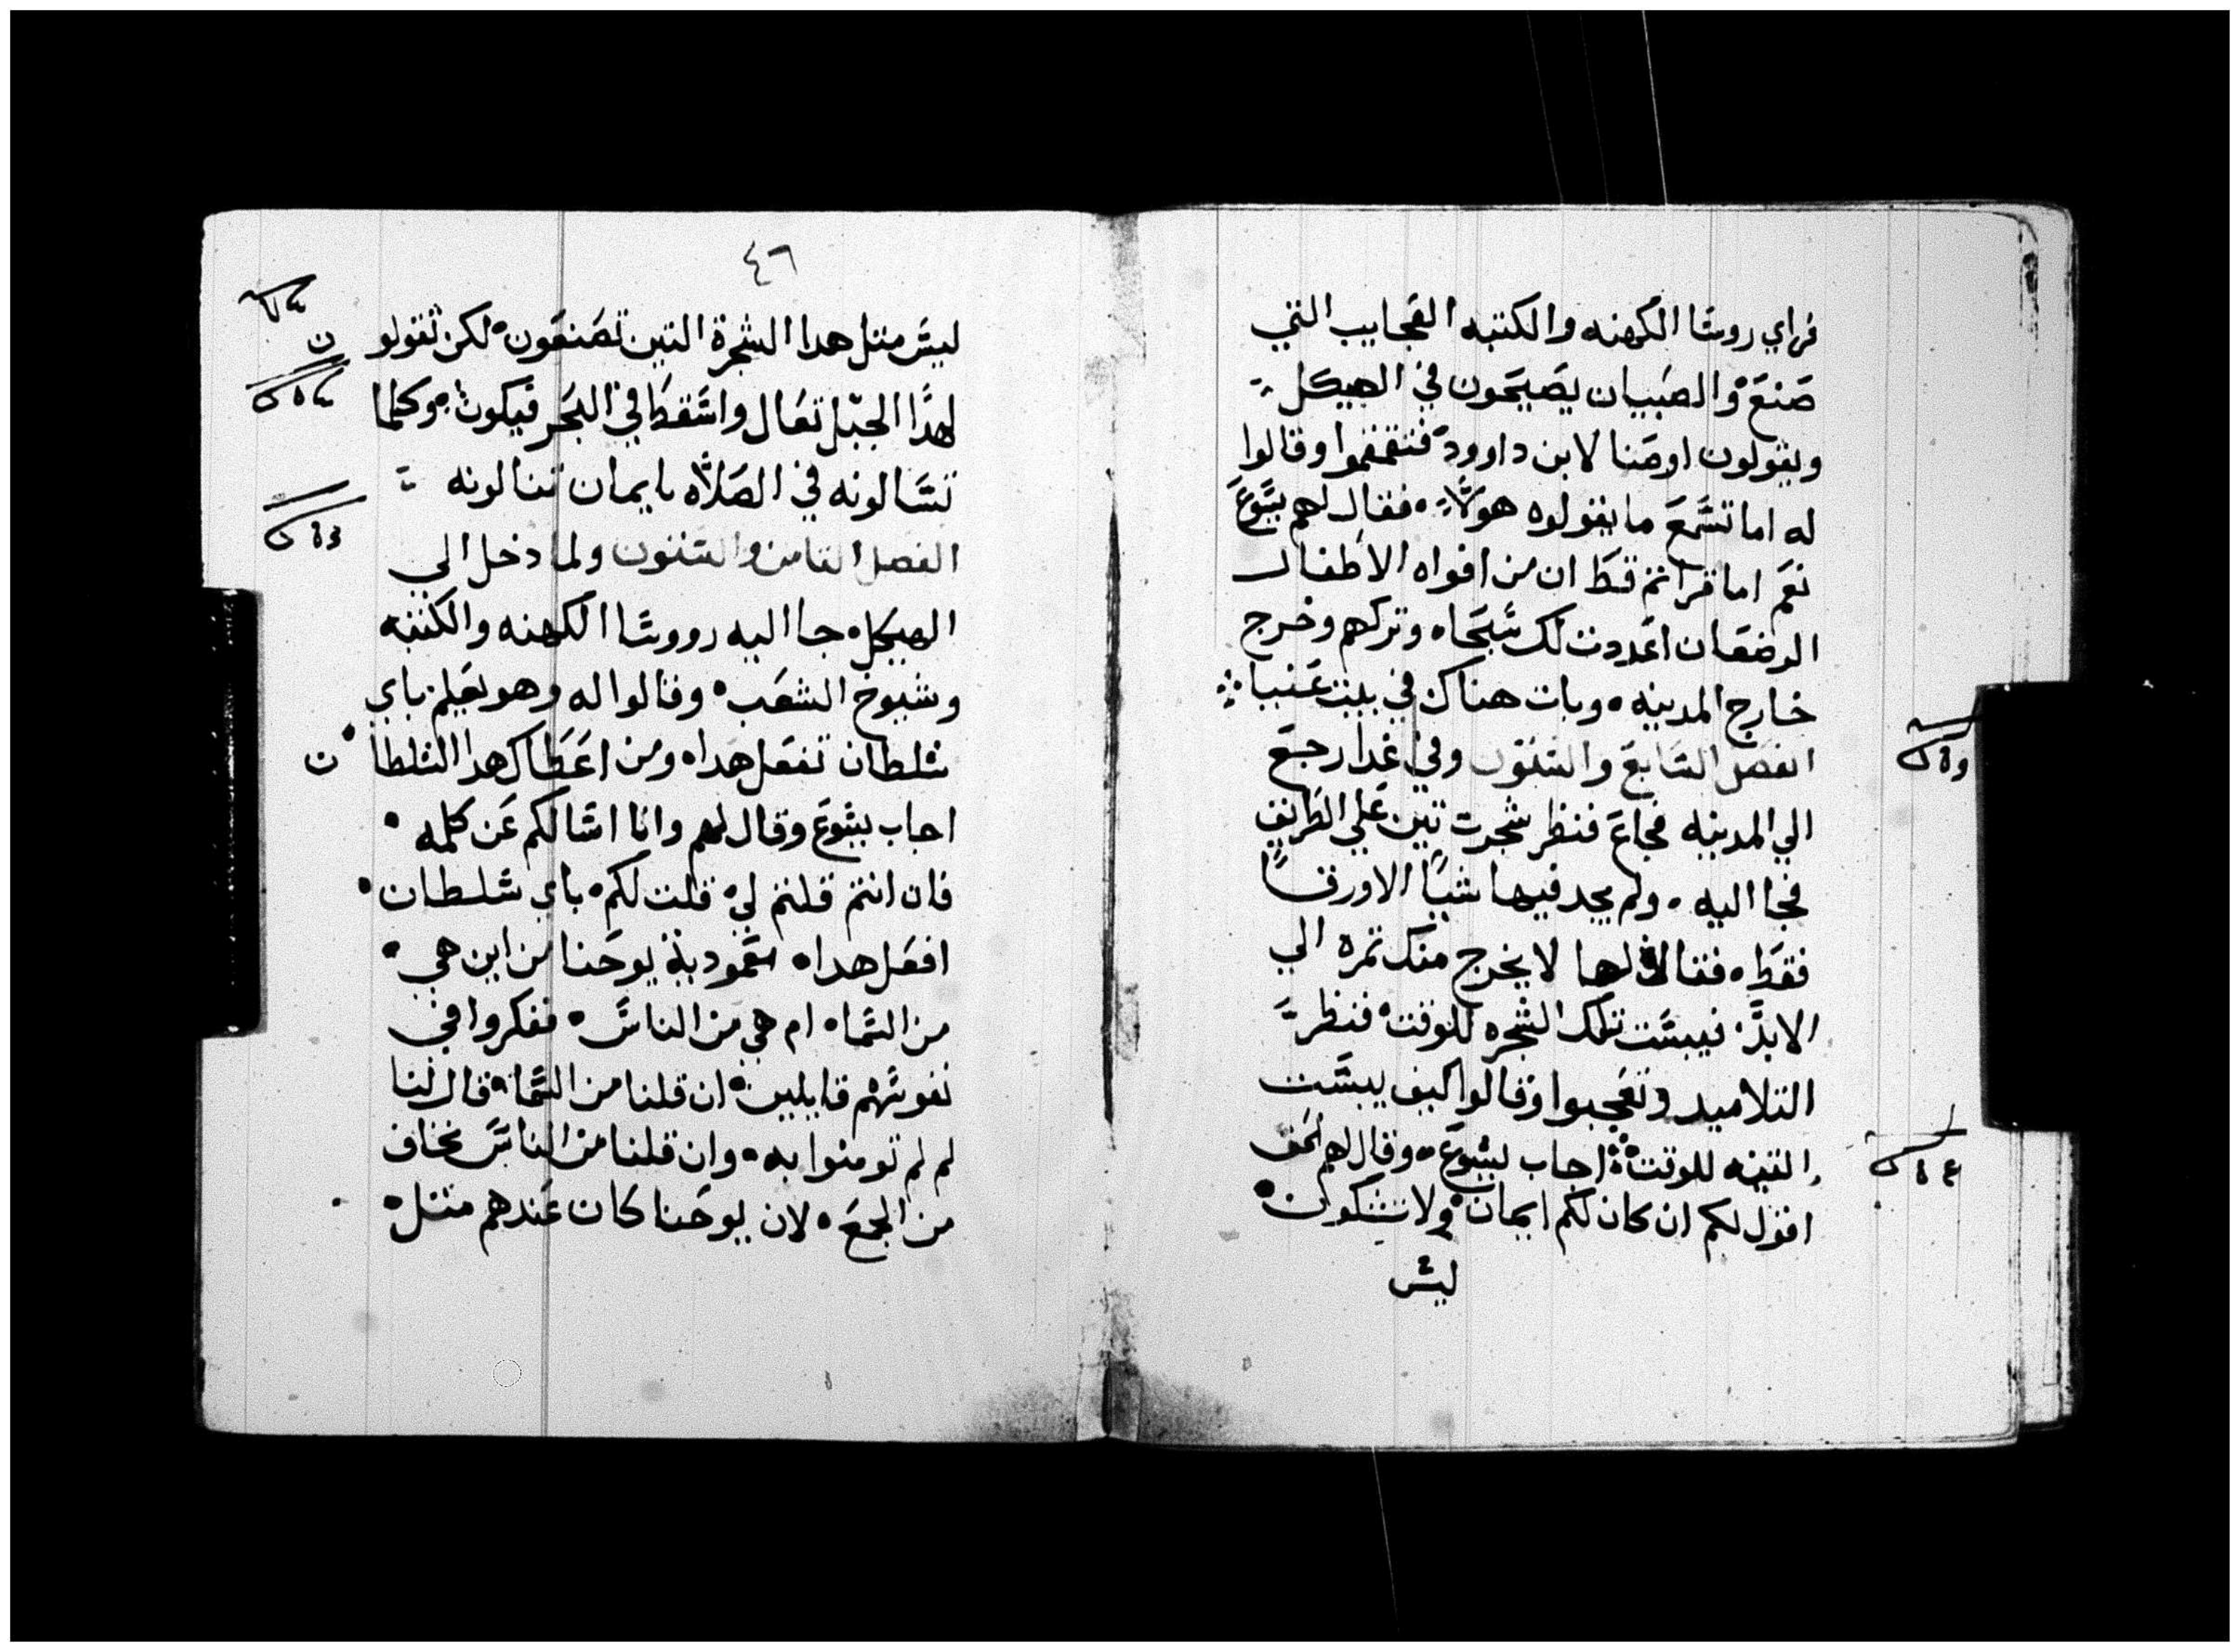 فراي روسا الكهنه والكتبه العجايب التي
صنع والصبيان يصيحون في الهيكل
ويقولون اوصنا لابن داوود فتقمقموا وقالوا
له اما تسمع ما يقولوه هولاء فقال لهم يسوع
نعم اما قراتم قط ان من افواه الاطفال
الرضعان اعددت لك سبحاه وتركهم وخرج
خارج المدينه وبات هناك في بيت عنيا
الفصل السابع والستون وفي غدا رجع
الي المدينه فجاع فنظر شجرت تين علي الطريق
فجا اليه ولم يجد فيها شيا الا ورقا
فقط فقال لها لا يخرج منك تمره الي
الابد فيبست تلك الشجره للوقت فنظر
التلاميد وتعجبوا وقالوا كيف يبست
التينه للوقت اجاب يسوع وقال لهم الحق
اقول لكم ان كان لكم ايمان ولا تشكون
ليس
٤٦
ليس متل هدا الشجرة التين تصنعون لكن تقولو
ن
لهدا الجبل تعال واسقط في البحر فيكون وكلما
تسالونه في الصلاه بايمان تنالونه
الفصل التامن والستون ولما دخل الي
الهيكل جا اليه رووسا الكهنه والكتبه
وشيوخ الشعب وقالوا له وهو يعلم باي
سلطان تفعل هداه ومن اعطاك هدا السلطا ن
اجاب يسوع وقال لهم وانا اسالكم عن كلمه
فان انتم قلتم لي قلت لكم باي سلطان
افعل هداه معمودية يوحنا من اين هي
من السماه ام هي من الناس ففكروا في
نفوسهم قايلين ان قلنا من السماء قال لنا
لم لم تومنوا به وان قلنا من الناس نخاف
من الجمع لان يوحنا كان عندهم متل